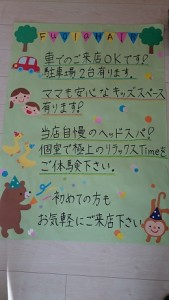 車でのご来店OKです!
駐車場2台有ります。
ママも安心なキッズスペース
有ります!
当店自慢のヘッドスパ!
個室で極上のリラックスTimeを
ご体験下さい。
初めての方も
お気軽にご来店下さい